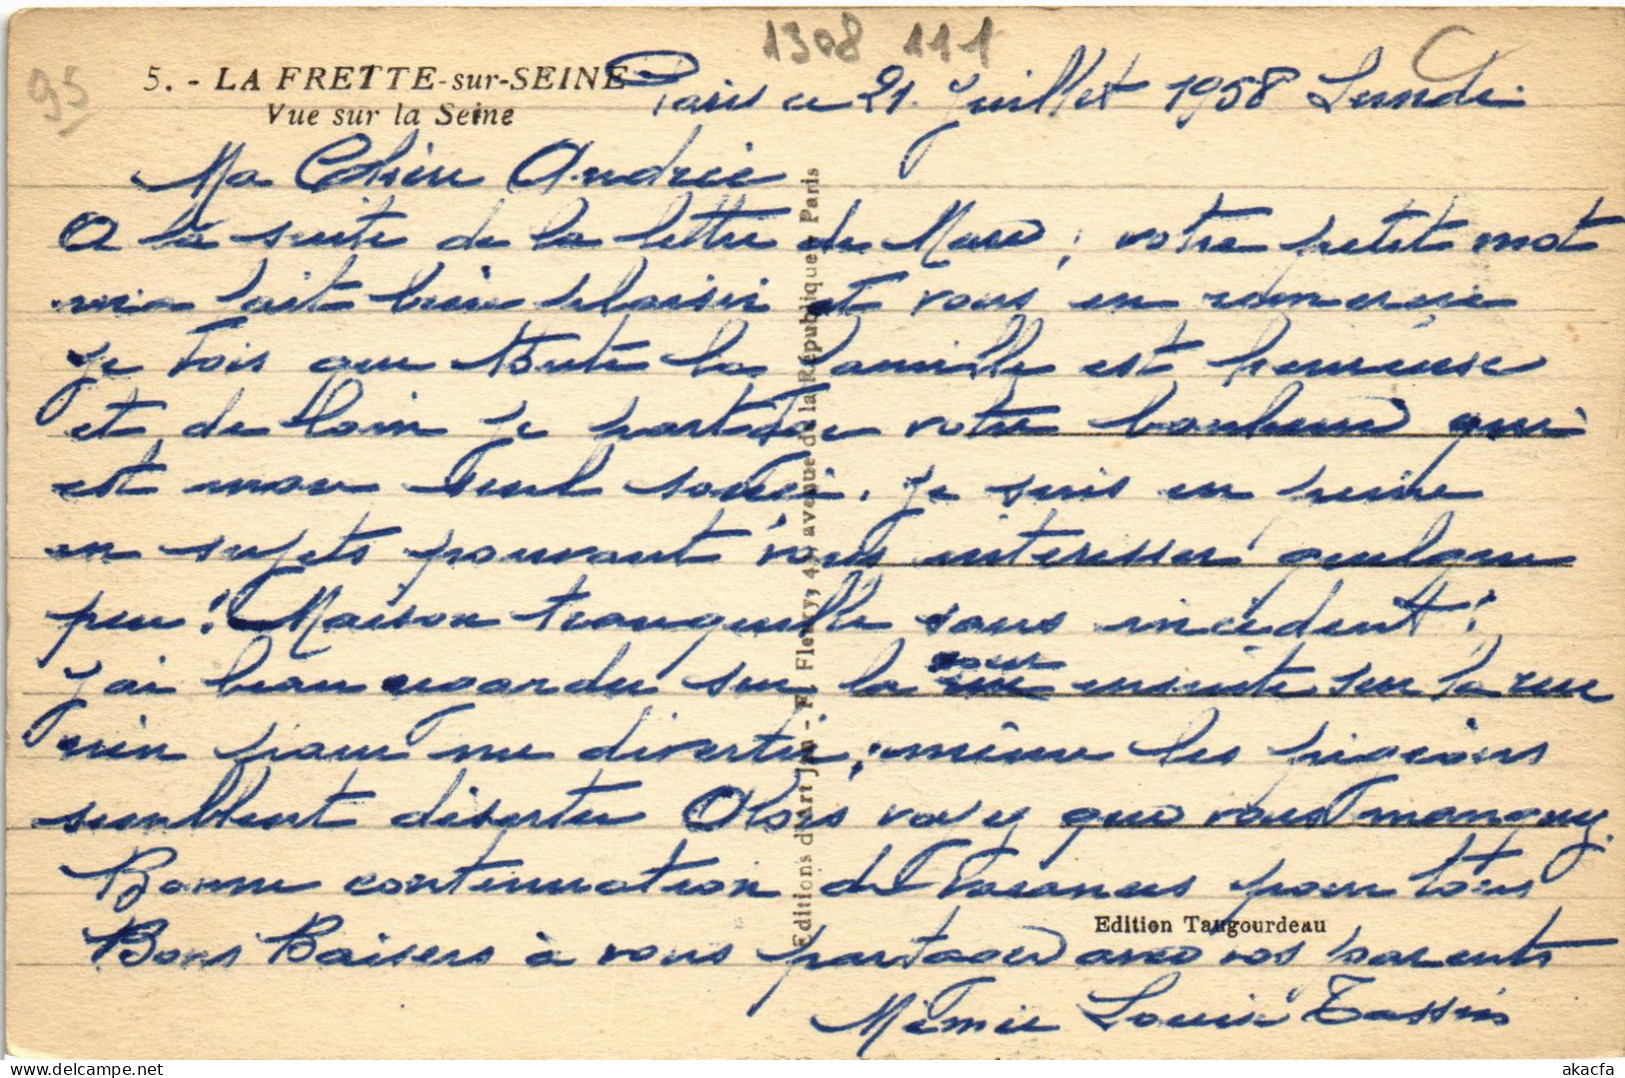 1308 111
95
5. - LA FRETTE-sur-SEINE
Vue sur la Seine
Paris ce 21 Juillet 1958 Lundi
Ma Chère Andrée
A la suite de la lettre de Marc, votre petit mot
m'a fait bien plaisir et vous en remercie
je vois que toute la famille est heureuse
et de loin je partage votre bonheur qui
est mon seul souci. Je suis en peine
en sujets pouvant vous intéresser quelque
peu ! Maison tranquille sans incident !
J'ai beau regarder sur la cour ensuite sur la rue
rien pour me divertir, même les pigeons
semblent déserter Alors voyez que vous manquez.
Bonne continuation de vacances pour tous
Bons Baisers à vous partager avec vos parents
Mémée Louise Tassin
Edition Taugourdeau
Editions d'Art Jan - F. Fleury, 45, avenue de la République, Paris
akacfa